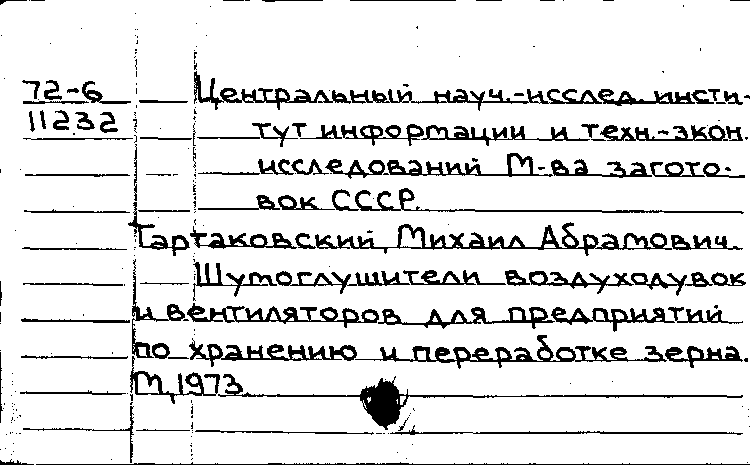 72-6 Центральный науч.-исслед. инсти-
11232 тут информации и техн.-экон.
исследований М-ва загото-
вок СССР.
Тартаковский, Михаил Абрамович.
Шумоглушители воздуходувок
и вентиляторов для предприятий
по хранению и переработке зерна.
М., 1973.